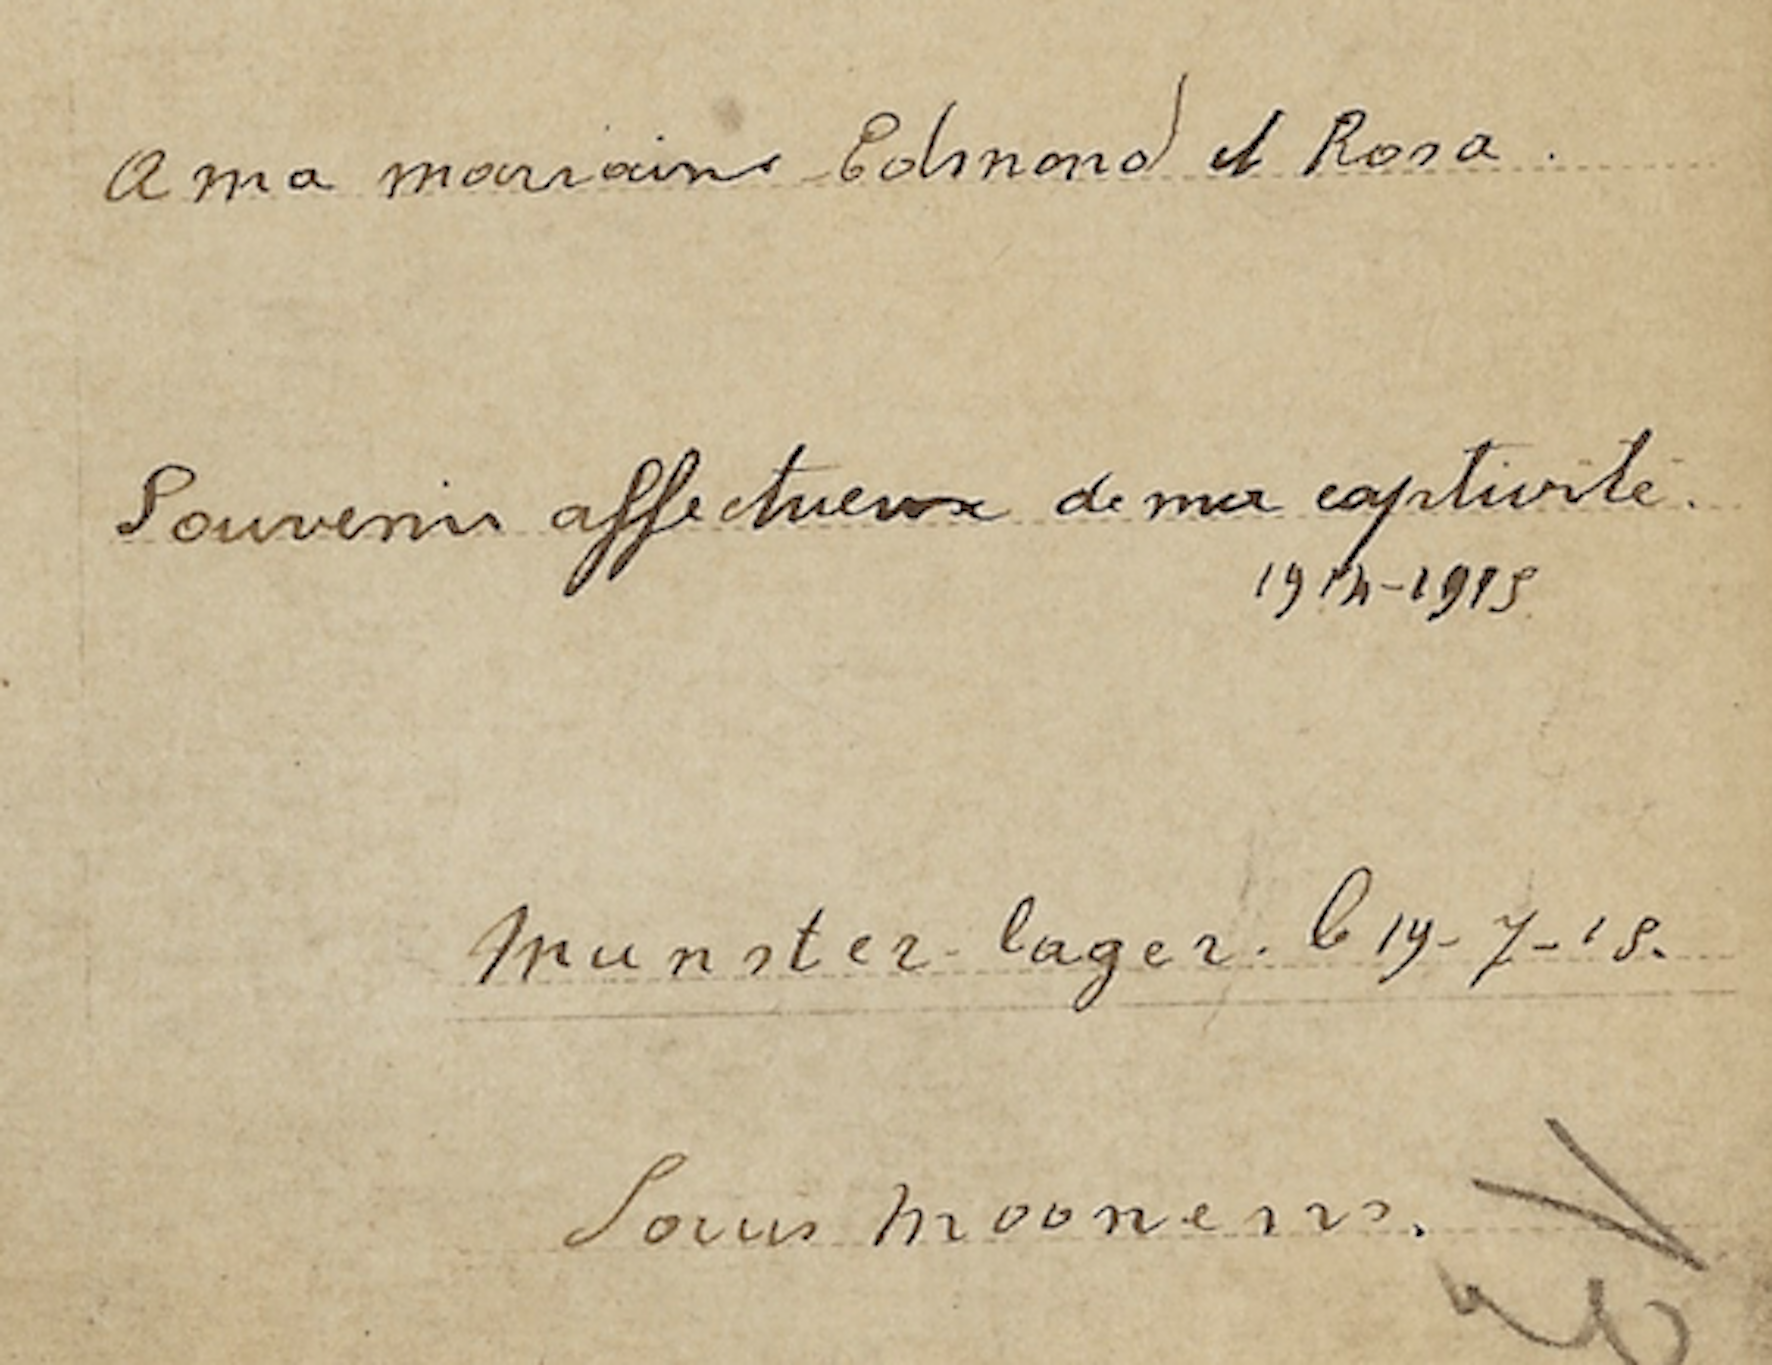 A ma marraine Edmond et Rosa.
Souvenir affectueux de ma captivité.
1914-1915
Munster-lager. le 19-7-15.
Louis Mooners.